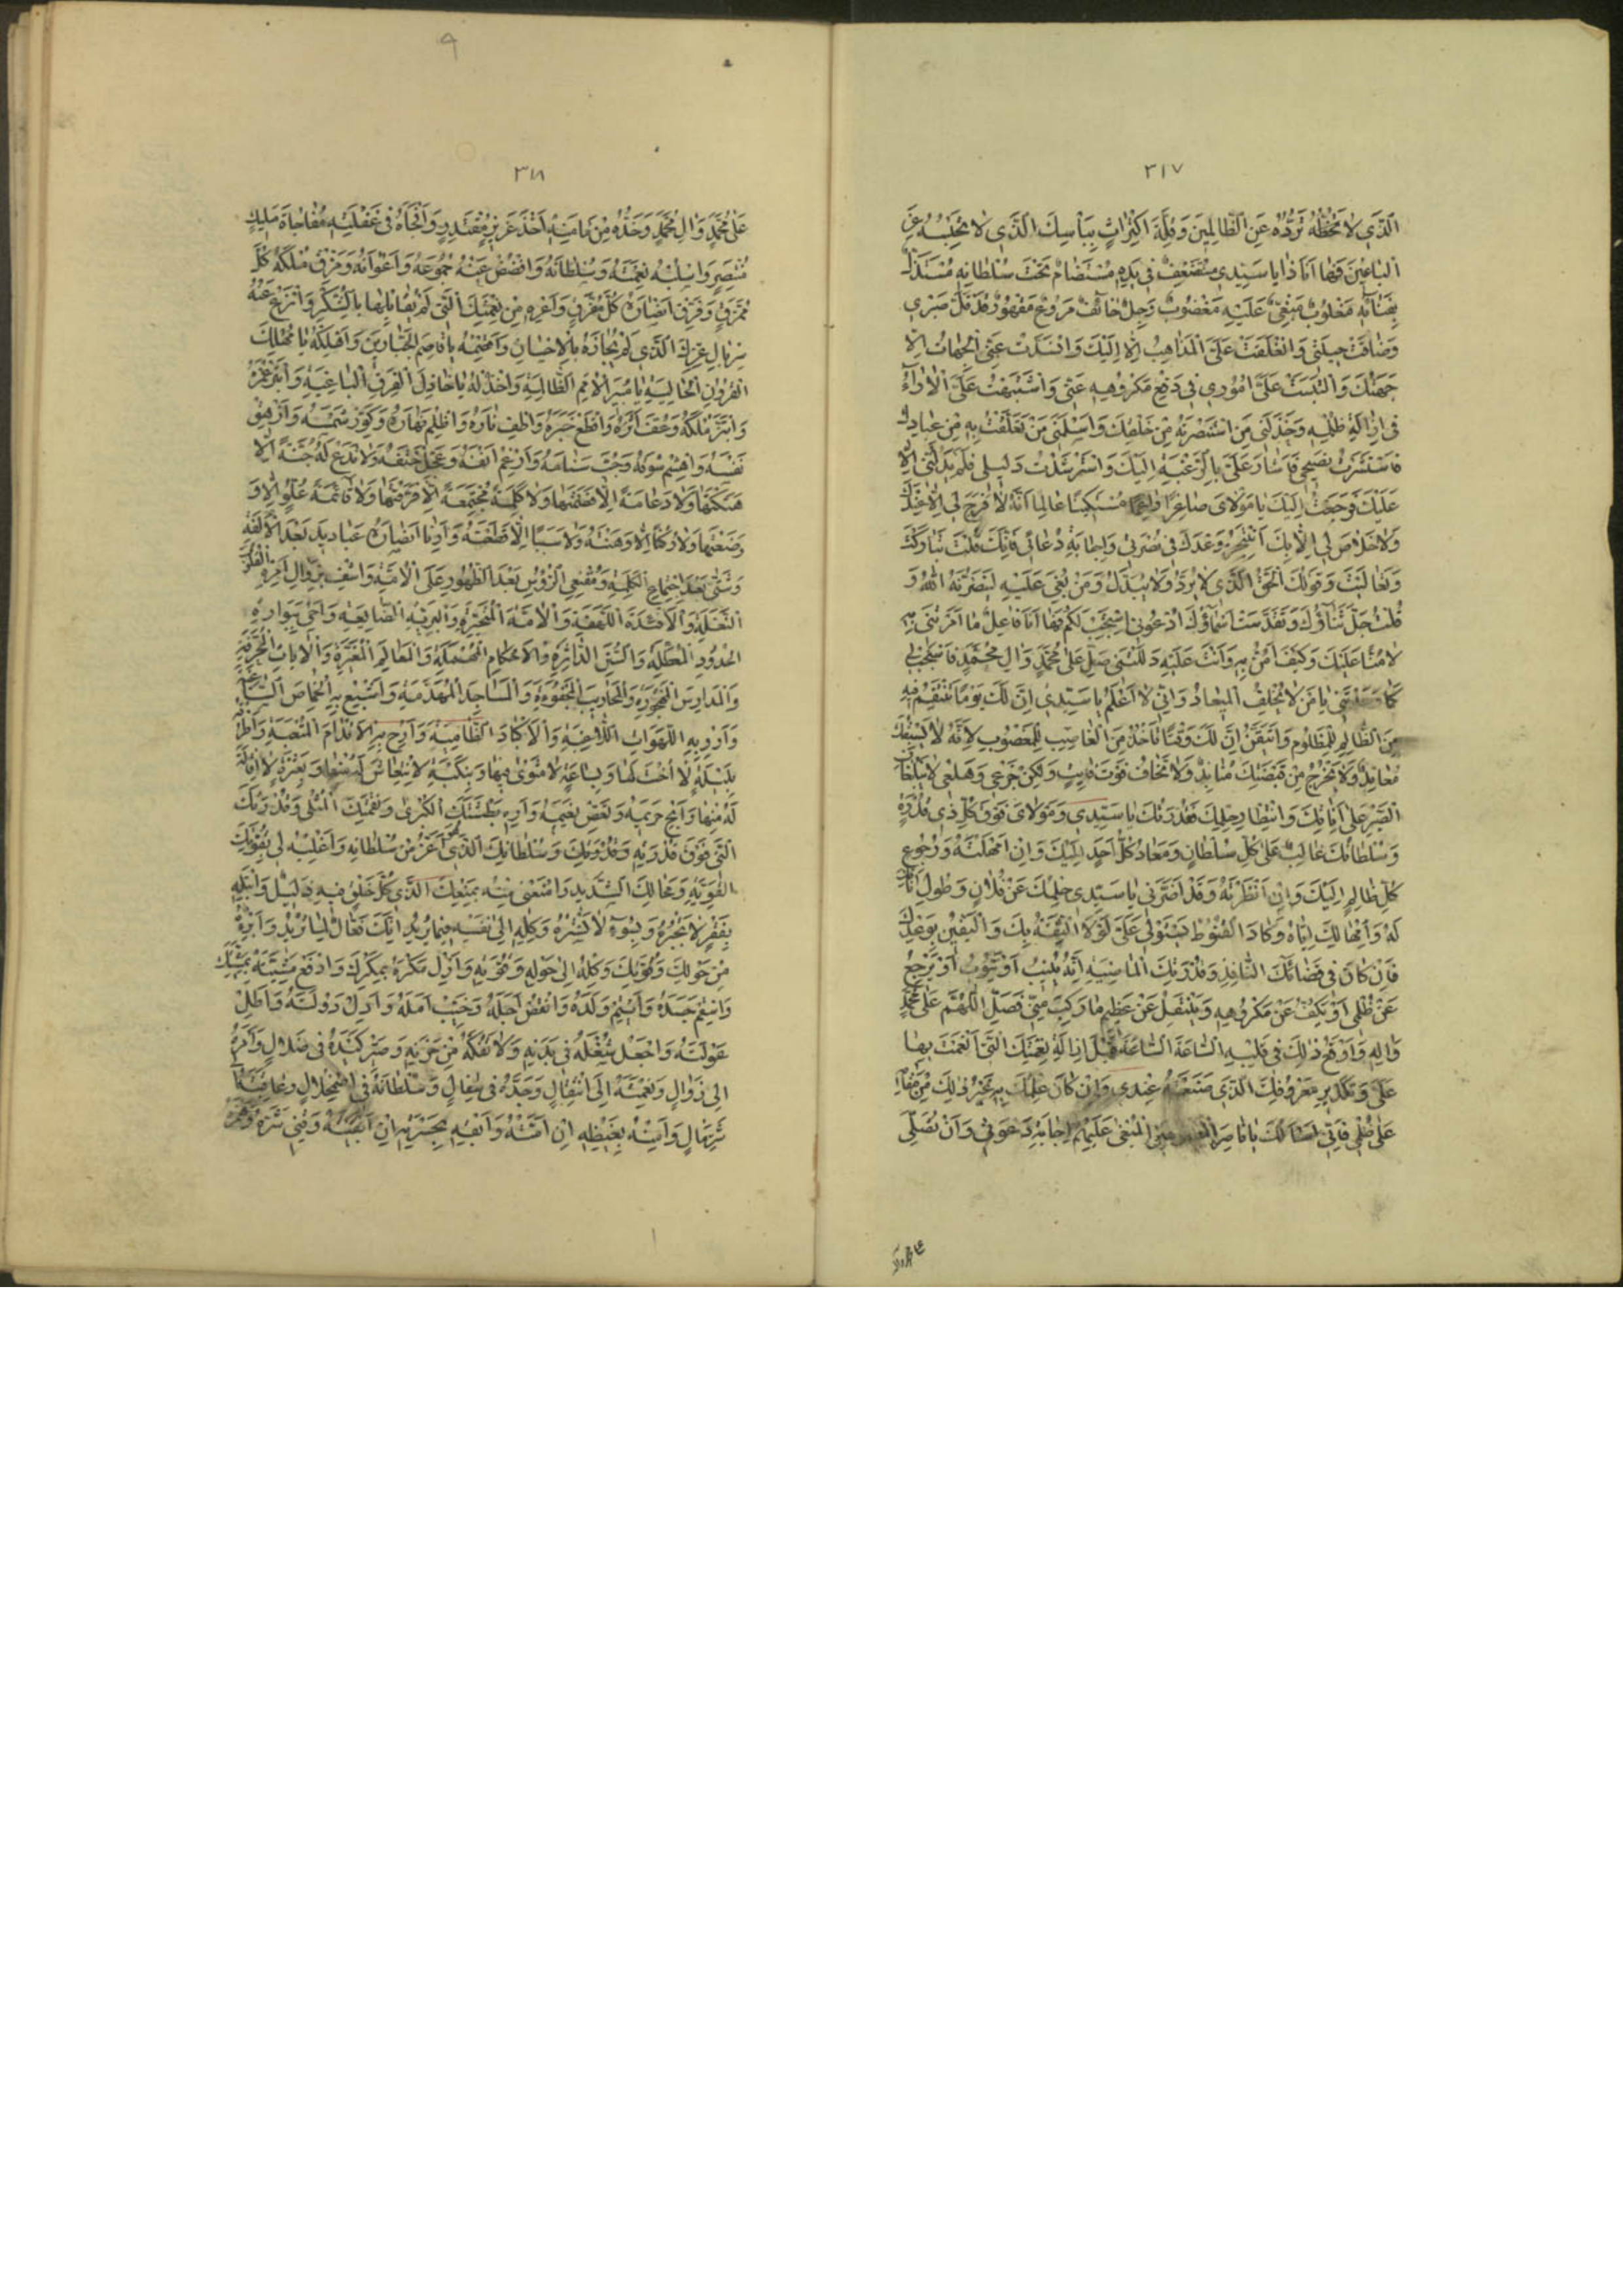 ٣١٧
الَّذي لا تَحْظُهُ تَرُدُّهُ عَنِ الظّالِمينَ وَقِلَّةَ اكْتِراثٍ بِبَأْسِكَ الَّذي لا تَحْبِسُهُ عَنِ
الْباغينَ فَها اَنَا ذا يا سَيِّدي مُسْتَضْعَفٌ في يَدِهِ مُسْتَضامٌ تَحْتَ سُلْطانِهِ مُسْتَذَلٌّ
بِفِنائِهِ مَغْلُوبٌ مَبْغِيٌّ عَلَيْهِ مَغْضُوبٌ وَجِلٌ خائِفٌ مُرَوَّعٌ مَقْهُورٌ قَدْ قَلَّ صَبْري
وَضاقَتْ حيلَتي وَانْغَلَقَتْ عَلَيَّ الْمَذاهِبُ اِلّا اِلَيْكَ وَانْسَدَّتْ عَنِّي الْجِهاتُ اِلّا
جِهَتُكَ وَالْتَبَسَتْ عَلَيَّ اُمُوري في دَفْعِ مَكْرُوهِهِ عَنّي وَاشْتَبَهَتْ عَلَيَّ الْاراءُ
في اِزالَةِ ظُلْمِهِ وَخَذَلَني مَنِ اسْتَنْصَرْتُهُ مِنْ خَلْقِكَ وَاَسْلَمَني مَنْ تَعَلَّقْتُ بِهِ مِنْ عِبادِكَ
فَاسْتَشَرْتُ نَصيحي فَاَشارَ عَلَيَّ بِالرَّغْبَةِ اِلَيْكَ وَاسْتَرْشَدْتُ دَليلي فَلَمْ يَدُلَّني اِلّا
عَلَيْكَ فَرَجَعْتُ اِلَيْكَ يا مَوْلايَ صاغِرًا راغِمًا مُسْتَكينًا عالِمًا اَنَّهُ لا فَرَجَ لي اِلّا عِنْدَكَ
وَلا خَلاصَ لي اِلّا بِكَ اَنْتَجِزُ وَعْدَكَ في نُصْرَتي وَاِجابَةِ دُعائي فَاِنَّكَ قُلْتَ تَبارَكْتَ
وَتَعالَيْتَ وَقَوْلُكَ الْحَقُّ الَّذي لا يُرَدُّ وَلا يُبَدَّلُ وَمَنْ بُغِيَ عَلَيْهِ لَيَنْصُرَنَّهُ اللهُ وَ
قُلْتَ جَلَّ ثَناؤُكَ وَتَقَدَّسَتْ اَسْماؤُكَ ادْعُوني اَسْتَجِبْ لَكُمْ فَها اَنَا فاعِلٌ ما اَمَرْتَني بِهِ
لا مَنًّا عَلَيْكَ وَكَيْفَ اَمُنُّ بِهِ وَاَنْتَ عَلَيْهِ دَلَلْتَني صَلِّ عَلى مُحَمَّدٍ وَالِ مُحَمَّدٍ فَاسْتَجِبْ لي
كَما وَعَدْتَني يا مَنْ لا يُخْلِفُ الْميعادَ وَاِنّي لَاَعْلَمُ يا سَيِّدي اِنَّ لَكَ يَوْمًا تَنْتَقِمُ فيهِ
مِنَ الظّالِمِ لِلْمَظْلُومِ وَاَتَيَقَّنُ اَنَّ لَكَ وَقْتًا تَأْخُذُ مِنَ الْغاصِبِ لِلْمَغْصُوبِ لِاَنَّهُ لا يَسْبِقُكَ
مُعانِدٌ وَلا يَخْرُجُ مِنْ قَبْضَتِكَ مُنابِذٌ وَلا تَخافُ فَوْتَ فائِتٍ وَلكِنْ جَزَعي وَهَلَعي لا يَبْلُغانِ
الصَّبْرَ عَلى اَناتِكَ وَانْتِظارِ حِلْمِكَ فَقُدْرَتُكَ يا سَيِّدي وَمَوْلايَ فَوْقَ كُلِّ ذي قُدْرَةٍ
وَسُلْطانُكَ غالِبٌ عَلى كُلِّ سُلْطانٍ وَمَعادُ كُلِّ اَحَدٍ اِلَيْكَ وَاِنْ اَمْهَلْتَهُ وَرُجُوعُ
كُلِّ ظالِمٍ اِلَيْكَ وَاِنْ اَنْظَرْتَهُ وَقَدْ اَضَرَّني يا سَيِّدي حِلْمُكَ عَنْ فُلانٍ وَطُولُ اَناتِكَ
لَهُ وَاِمْهالُكَ اِيّاهُ وَكادَ الْقُنُوطُ يَسْتَوْلي عَلَيَّ لَوْلَا الثِّقَةُ بِكَ وَالْيَقينُ بِوَعْدِكَ
فَاِنْ كانَ في قَضائِكَ النّافِذِ وَقُدْرَتِكَ الْماضِيَةِ اَنَّهُ يُنيبُ اَوْ يَتُوبُ اَوْ يَرْجِعُ
عَنْ ظُلْمي اَوْ يَكُفُّ عَنْ مَكْرُوهِهِ وَيَنْتَقِلُ عَنْ عَظيمِ ما رَكِبَ مِنّي فَصَلِّ اللّهُمَّ عَلى مُحَمَّدٍ
وَالِهِ وَاَوْقِعْ ذلِكَ في قَلْبِهِ السّاعَةَ السّاعَةَ قَبْلَ اِزالَةِ نِعْمَتِكَ الَّتي اَنْعَمْتَ بِها
عَلَيَّ وَتَكْديرِ مَعْرُوفِكَ الَّذي صَنَعْتَهُ عِنْدي وَاِنْ كانَ عِلْمُكَ بِهِ غَيْرَ ذلِكَ مِنْ مُقامِهِ
عَلى ظُلْمي فَاِنّي اَسْأَلُكَ يا ناصِرَ الْمَبْغى عَلَيْهِمْ اِجابَةَ دَعْوَتي وَاَنْ تُصَلِّيَ
٣١٨
عَلى مُحَمَّدٍ وَالِ مُحَمَّدٍ وَخُذْهُ مِنْ مَأمَنِهِ اَخْذَ عَزيزٍ مُقْتَدِرٍ وَافْجَأْهُ في غَفْلَتِهِ مُفاجاةَ مَليكٍ
مُنْتَصِرٍ وَاسْلُبْهُ نِعْمَتَهُ وَسُلْطانَهُ وَافْضُضْ عَنْهُ جُمُوعَهُ وَاَعْوانَهُ وَمَزِّقْ مُلْكَهُ كُلَّ
مُمَزَّقٍ وَفَرِّقْ اَنْصارَهُ كُلَّ مُفَرَّقٍ وَاَعْرِهِ مِنْ نِعْمَتِكَ الَّتي لَمْ يُقابِلْها بِالشُّكْرِ وَانْزِعْ عَنْهُ
سِرْبالَ عِزِّكَ الَّذي لَمْ يُجازِهُ بِالْاِحْسانِ وَاقْصِمْهُ يا قاصِمَ الْجَبّارينَ وَاَهْلِكْهُ يا مُهْلِكَ
الْقُرُونِ الْخالِيَةِ يا مُبيرَ الْاُمَمِ الظّالِمَةِ وَاخْذُلْهُ يا خاذِلَ الْفِرَقِ الْباغِيَةِ وَابْتُرْ عُمْرَهُ
وَابْتَزَّ مُلْكَهُ وَعَفِّ اَثَرَهُ وَاقْطَعْ خَبَرَهُ وَاَطْفِ نارَهُ وَاَظْلِمْ نَهارَهُ وَكَوِّرْ شَمْسَهُ وَاَزْهِقْ
نَفْسَهُ وَاهْشِمْ سُوقَهُ وَجُبَّ سَنامَهُ وَاَرْغِمْ اَنْفَهُ وَعَجِّلْ حَتْفَهُ وَلا تَدَعْ لَهُ جُنَّةً اِلّا
هَتَكْتَها وَلا دَعامَةً اِلّا قَصَمْتَها وَلا كَلِمَةً مُجْتَمِعَةً اِلّا فَرَّقْتَها وَلا قائِمَةَ عُلُوٍّ اِلّا وَ
وَضَعْتَها وَلا رُكْنًا اِلّا وَهَنْتَهُ وَلا سَبَبًا اِلّا قَطَعْتَهُ وَاَرِنا اَنْصارَهُ عَباديدَ بَعْدَ الْاُلْفَةِ
وَشَتّى بَعْدَ اجْتِماعِ الْكَلِمَةِ وَمُقْنِعِي الرُّؤُسِ بَعْدَ الظُّهُورِ عَلَى الْاُمَّةِ وَاشْفِ بِزَوالِ اَمْرِهِ الْقُلُوبَ
النَّغِلَةَ وَالْاَفْئِدَةَ اللَّهِفَةَ وَالْاُمَّةَ الْمُتَحَيِّرَةَ وَالْبَرِيَّةَ الضّائِعَةَ وَاَحْيِ بِبَوارِهِ
الْحُدُودَ الْمُعَطَّلَةَ وَالسُّنَنَ الدّاثِرَةَ وَالْاَحْكامَ الْمُهْمَلَةَ وَالْمَعالِمَ الْمُغَيَّرَةَ وَالْاياتِ الْمُحَرَّفَةَ
وَالْمَدارِسَ الْمَهْجُورَةَ وَالْمَحاريبَ الْمَجْفُوَّةَ وَالْمَساجِدَ الْمُهَدَّمَةَ وَاَشْبِعْ بِهِ الْخِماصَ السّاغِبَةَ
وَاَرْوِ بِهِ اللَّهَواتِ اللّاغِبَةَ وَالْاَكْبادَ الظّامِيَةَ وَاَرِحْ بِهِ الْاَقْدامَ الْمُتْعَبَةَ وَاطْرُقْهُ
بِلَيْلَةٍ لا اُخْتَ لَها وَبِساعَةٍ لا مَثْوى فيها وَبِنَكْبَةٍ لَا انْتِعاشَ مِنْها وَبِعَثْرَةٍ لا اِقالَةَ
لَهُ مِنْها وَاَبِحْ حَريمَهُ وَنَغِّصْ نَعيمَهُ وَاَرِهِ بَطْشَتَكَ الْكُبْرى وَنِقْمَتَكَ الْمُثْلى وَقُدْرَتَكَ
الَّتي فَوْقَ قُدْرَتِهِ وَسُلْطانَكَ الَّذي هُوَ اَعَزُّ مِنْ سُلْطانِهِ وَاغْلِبْهُ لي بِقُوَّتِكَ
الْقَوِيَّةِ وَمِحالِكَ الشَّديدِ وَامْنَعْني مِنْهُ بِمَنْعِكَ الَّذي كُلُّ خَلْقٍ فيهِ ذَليلٌ وَابْتَلِهِ
بِفَقْرٍ لا تَجْبُرُهُ وَبِسُوءٍ لا تَسْتُرُهُ وَكِلْهُ اِلى نَفْسِهِ فيما يُريدُ اِنَّكَ فَعّالٌ لِما تُريدُ وَاَبْرِئْهُ
مِنْ حَوْلِكَ وَقُوَّتِكَ وَكِلْهُ اِلى حَوْلِهِ وَقُوَّتِهِ وَاَزِلْ مَكْرَهُ بِمَكْرِكَ وَادْفَعْ مَشِيَّتَهُ بِمَشِيَّتِكَ
وَاسْقِمْ جَسَدَهُ وَاَيْتِمْ وَلَدَهُ وَانْقُضْ اَجَلَهُ وَخَيِّبْ اَمَلَهُ وَاَدِلْ دَوْلَتَهُ وَاَطِلْ
عَوْلَتَهُ وَاجْعَلْ شُغْلَهُ في بَدَنِهِ وَلا تَفُكَّهُ مِنْ حُزْنِهِ وَصَيِّرْ كَيْدَهُ في ضَلالٍ وَاَمْرَهُ
اِلى زَوالٍ وَنِعْمَتَهُ اِلَى انْتِقالٍ وَجَدَّهُ في سِفالٍ وَسُلْطانَهُ فِي اضْمِحْلالٍ وَعافِيَتَهُ
شَرِّ مَالٍ وَاَمِتْهُ بِغَيْظِهِ اِنْ اَمَتَّهُ وَاَبْقِهِ بِحَسْرَتِهِ اِنْ اَبْقَيْتَهُ وَقِني شَرَّهُ وَهَمْزَهُ